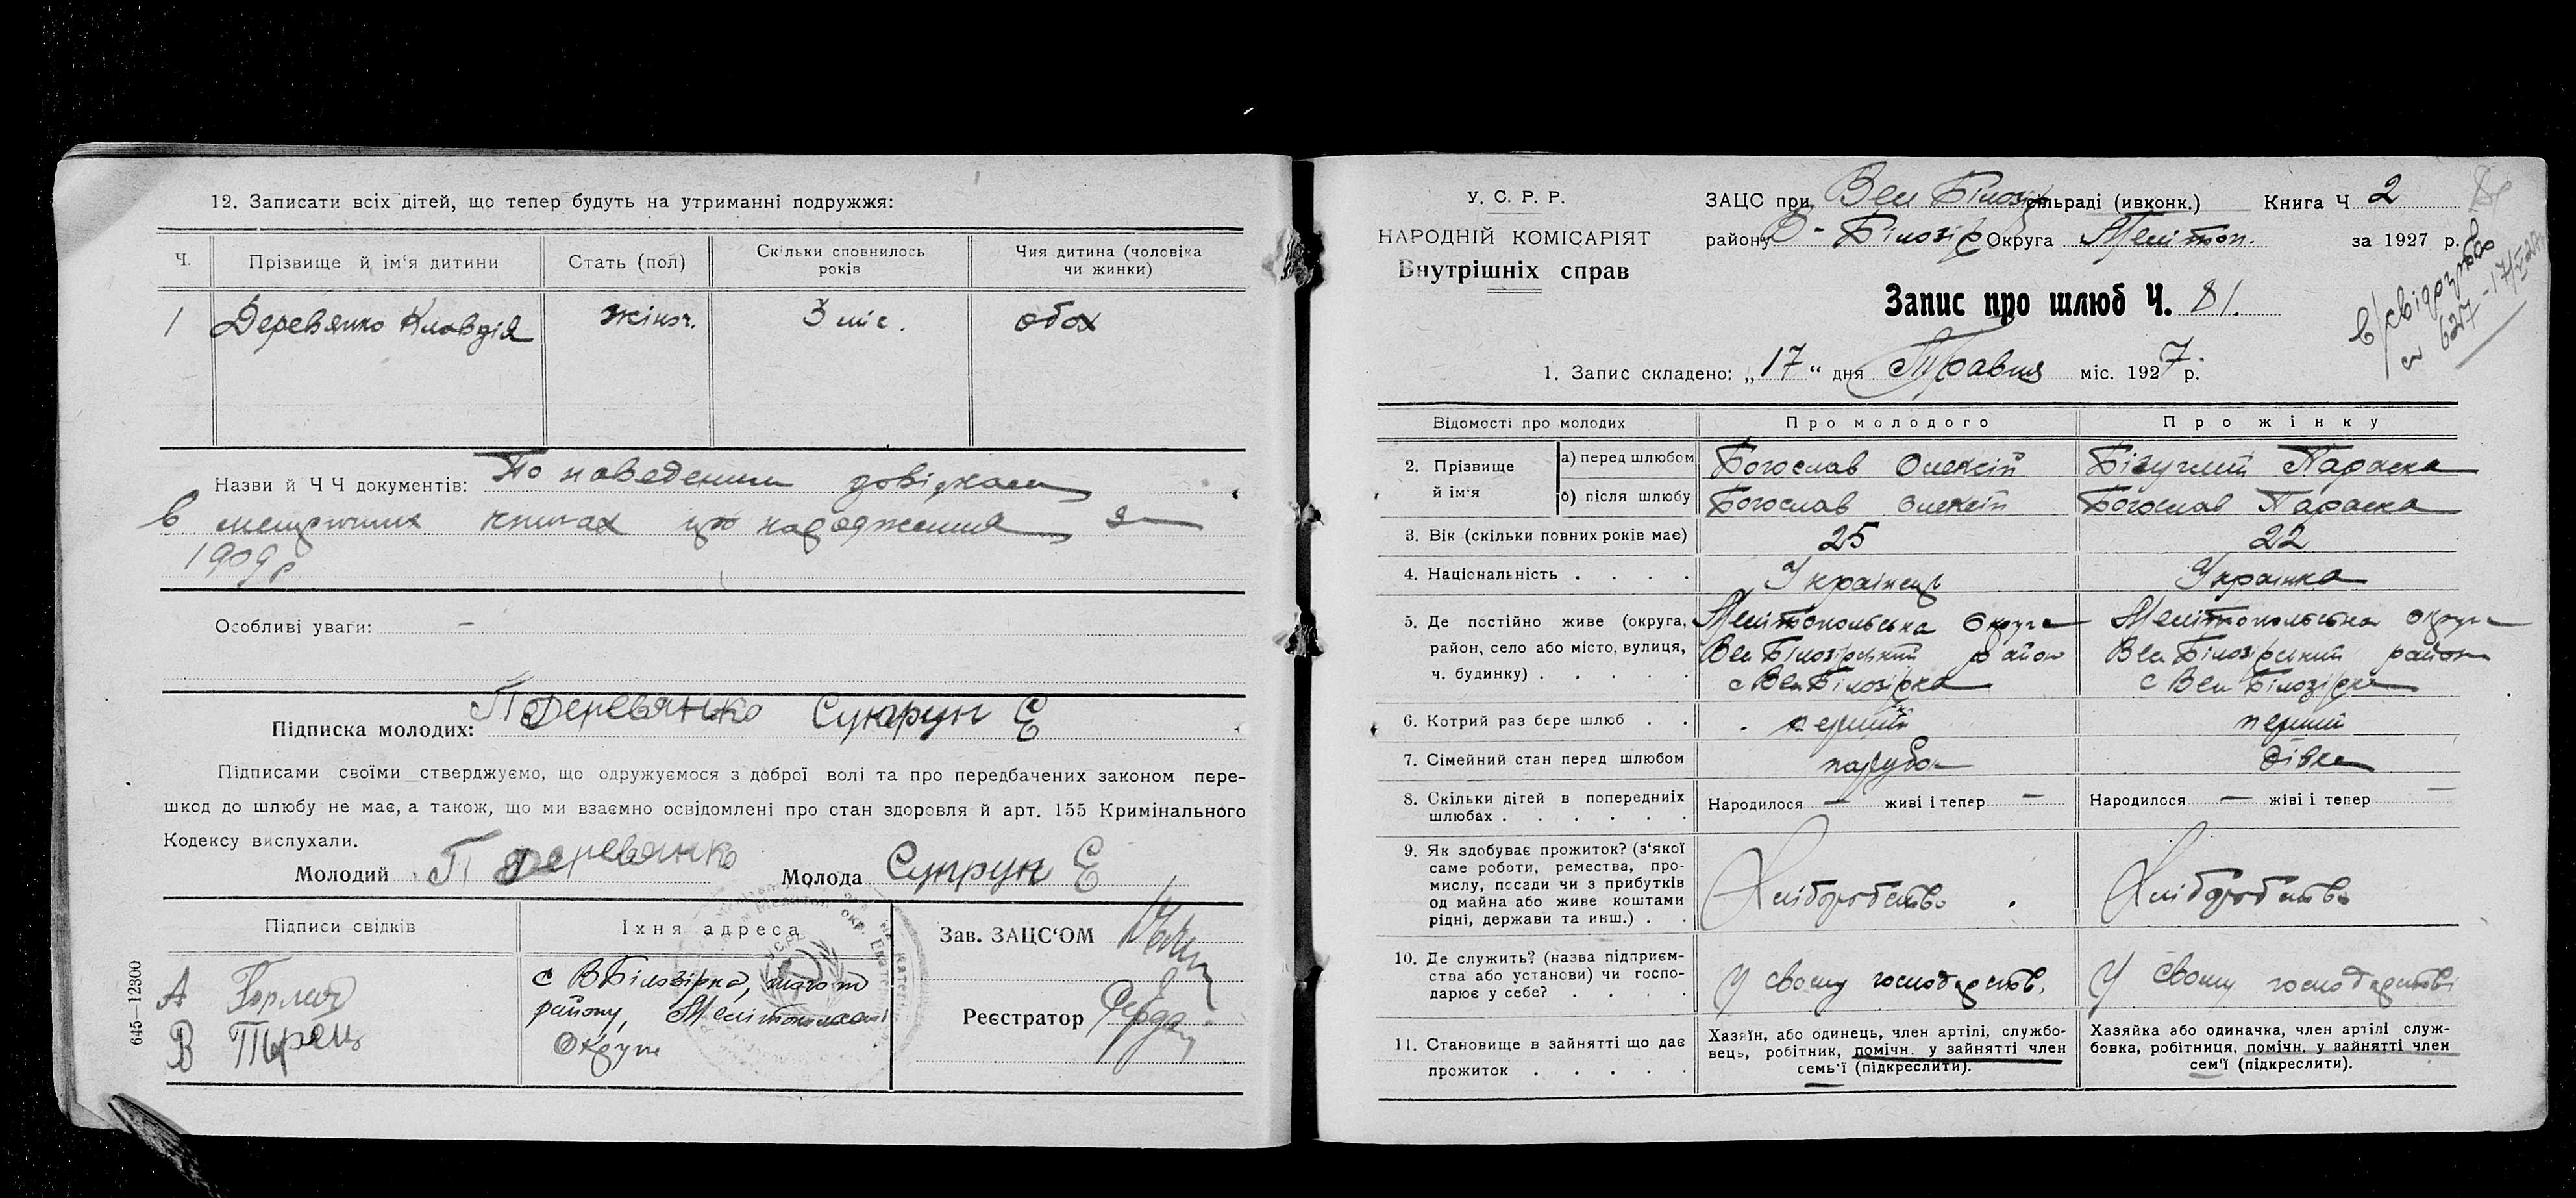 12. Записати всіх дітей, що тепер будуть на утриманні подружжя:
Ч. Прізвище й ім'я дитини Стать (пол) Скільки сповнилось років Чия дитина (чоловіка чи жинки)
1 Деревянко Клавдія жіноч. 3 міс. обох
Назви й Ч Ч документів: По наведеним довідкам
в метричних книгах про народження за
1909 р
Особливі уваги: —
Підписка молодих: П Деревянко Супрун Е
Підписами своїми стверджуємо, що одружуємося з доброї волі та про передбачених законом пере-
шкод до шлюбу не має, а також, що ми взаємно освідомлені про стан здоровля й арт. 155 Кримінального
Кодексу вислухали.
Молодий П Деревянко Молода Супрун Е
Підписи свідків Їхня адреса Зав. ЗАЦС'ОМ
А
В
с ВБілозірка, того ж
району, Мелітопольської
Округи
Реєстратор
645—12300
У. С. Р. Р.
НАРОДНІЙ КОМІСАРІЯТ
Внутрішніх справ
ЗАЦС при Вел Білозір сільраді (ивконк.) Книга Ч 2
району В-Білозір Округа Мелітоп. за 1927 р.
81
Запис про шлюб Ч. 81.
в/свідоцтво
627 - 17/V 27
1. Запис складено: „17" дня Травня міс. 1927 р.
Відомості про молодих Про молодого Про жінку
2. Прізвище й ім'я
а) перед шлюбом Богослав Олексій Параска
б) після шлюбу Богослав Олексій Богослав Параска
3. Вік (скільки повних років має) 25 22
4. Національність . . . . Українець Українка
5. Де постійно живе (округа, район, село або місто, вулиця, ч. будинку) . . . . .
Мелітопольська Округа Мелітопольська округа
Вел Білозірський район Вел Білозірський район
с Вел Білозірка с Вел Білозірка
6. Котрий раз бере шлюб . . перший перший
7. Сімейний стан перед шлюбом парубок дівка
8. Скільки дітей в попередніх шлюбах . . . . . . Народилося — живі і тепер — Народилося — жіві і тепер —
9. Як здобуває прожиток? (з'якої
саме роботи, ремества, про-
мислу, посади чи з прибутків
од майна або живе коштами
рідні, держави та инш.) . .
Хліборобство Хліборобство
10. Де служить? (назва підприєм-
ства або установи) чи госпо-
дарює у себе? . . . .
У своєму господарств. У своєму господарстві
11. Становище в зайнятті що дає
прожиток . . . . .
Хазяїн, або одинець, член артілі, службо-
вець, робітник, помічн. у зайнятті член
семь'ї (підкреслити).
Хазяйка або одиначка, член артілі служ-
бовка, робітниця, помічн. у зайнятті член
сем'ї (підкреслити).